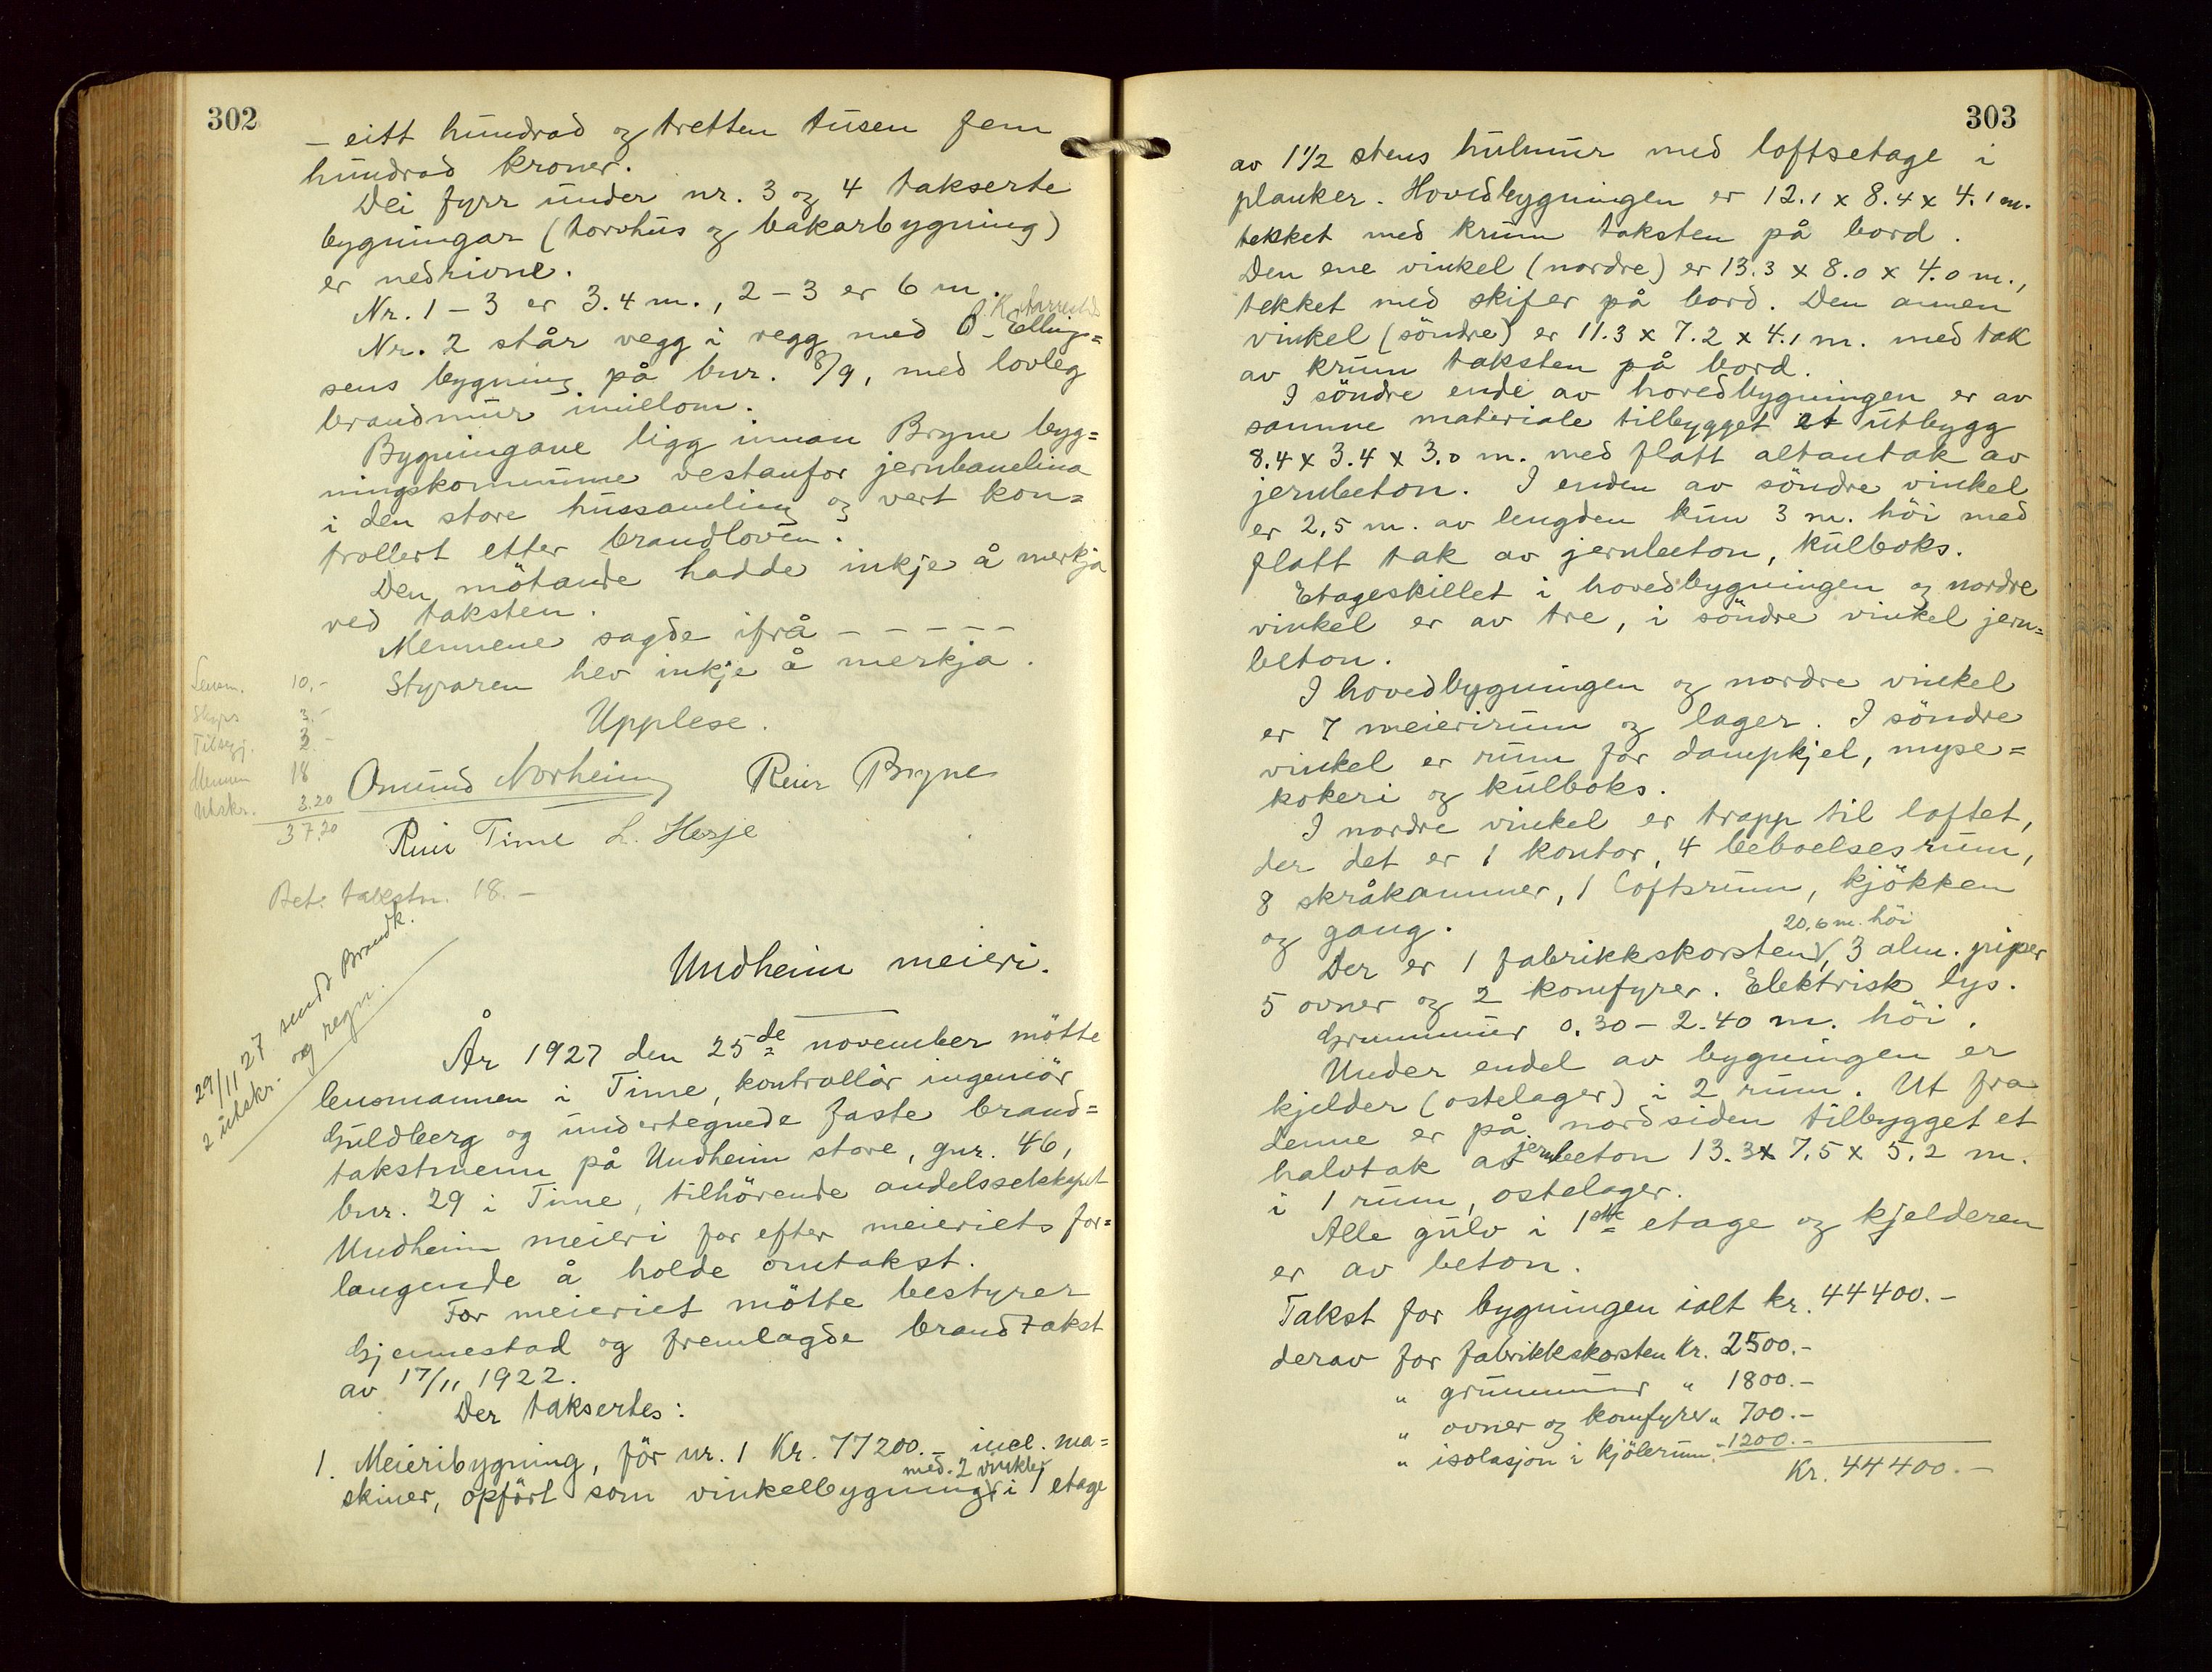 302
- eitt hundrad og tretten tusen fem
hundrad kroner.
Dei fyrr under nr. 3 og 4 takserte
bygningar (torvhus og bakarbygning)
er nedrivne.
Nr. 1 - 3 er 3.4 m., 2 - 3 er 6 m.
O. K.
Nr. 2 står vegg i vegg med O. Elling=
sens bygning på bnr. 8/9, med lovleg
brandmur imillom.
Bygningane ligg innan Bryne byg=
ningskommune vestanfor jernbanelina
i den store hussamling og vert kon=
trollert etter brandloven.
Den mötande hadde inkje å merkja
ved taksten.
Mennene sagde ifrå - - - - -
Styraren hev inkje å merkja.
Upplese.
Lensm. 10,-
Skyss 3.-
Tilsyj. 3.-
Mennen 18
Utskr. 3.20
37.20
Omund Norheim Reier Bryne
Reier Time L. Hesje
Bet. takstm. 18.-
29/11 27 sendt Brandk.
2 utskr. og regn.
Undheim meieri.
År 1927 den 25de november mötte
lensmannen i Time, kontrollör ingeniör
Guldberg og undertegnede faste brand=
takstmenn på Undheim store, gnr. 46,
bnr. 29 i Time, tilhörende andelsselskapet
Undheim meieri for efter meieriets for=
langende å holde omtakst.
For meieriet mötte bestyrer
Gjennestad og fremlagde brandtakst
av 17/11 1922.
Der taksertes:
1. Meieribygning, för nr. 1 Kr. 77200.- incl. ma=
med 2 vinkler
skiner, opfört som vinkelbygning i 1 etage
303
av 1 1/2 stens hulmur med loftsetage i
planker. Hovedbygningen er 12.1 x 8.4 x 4.1 m.
tekket med krum taksten på bord.
Den ene vinkel (nordre) er 13.3 x 8.0 x 4.0 m.,
tekket med skifer på bord. Den annen
vinkel (söndre) er 11.3 x 7.2 x 4.1 m. med tak
av krum taksten på bord.
I söndre ende av hovedbygningen er av
samme materiale tilbygget et utbygg
8.4 x 3.4 x 3.0 m. med flatt altantak av
jernbeton. I enden av söndre vinkel
er 2,5 m. av lengden kun 3 m. höi med
flatt tak av jernbeton, kulboks.
Etageskillet i hovedbygningen og nordre
vinkel er av tre, i söndre vinkel jern=
beton.
I hovedbygningen og nordre vinkel
er 7 meierirum og lager. I söndre
vinkel er rum for dampkjel, myse=
kokeri og kulboks.
I nordre vinkel er trapp til loftet,
der det er 1 kontor, 4 beboelsesrum,
8 skråkammer, 1 loftsrum, kjökken
og gang.
20,6 m. höi
Der er 1 fabrikkskorsten, 3 alm. piper
5 ovner og 2 komfyrer. Elektrisk lys.
Grunnmur 0.30 - 2.40 m. höi.
Under endel av bygningen er
kjelder (ostelager) i 2 rum. Ut fra
denne er på nordsiden tilbygget et
halvtak av jernbeton 13.3 x 7,5 x 5,2 m.
i 1 rum, ostelager.
Alle gulv i 1ste etage og kjelderen
er av beton.
Takst for bygningen ialt kr. 44400.-
derav for fabrikkskorsten Kr. 2500.-
" grunnmur " 1800.-
" ovner og komfyrer " 700.-
" isolasjon i kjölerum " 1200.-
Kr. 44400.-